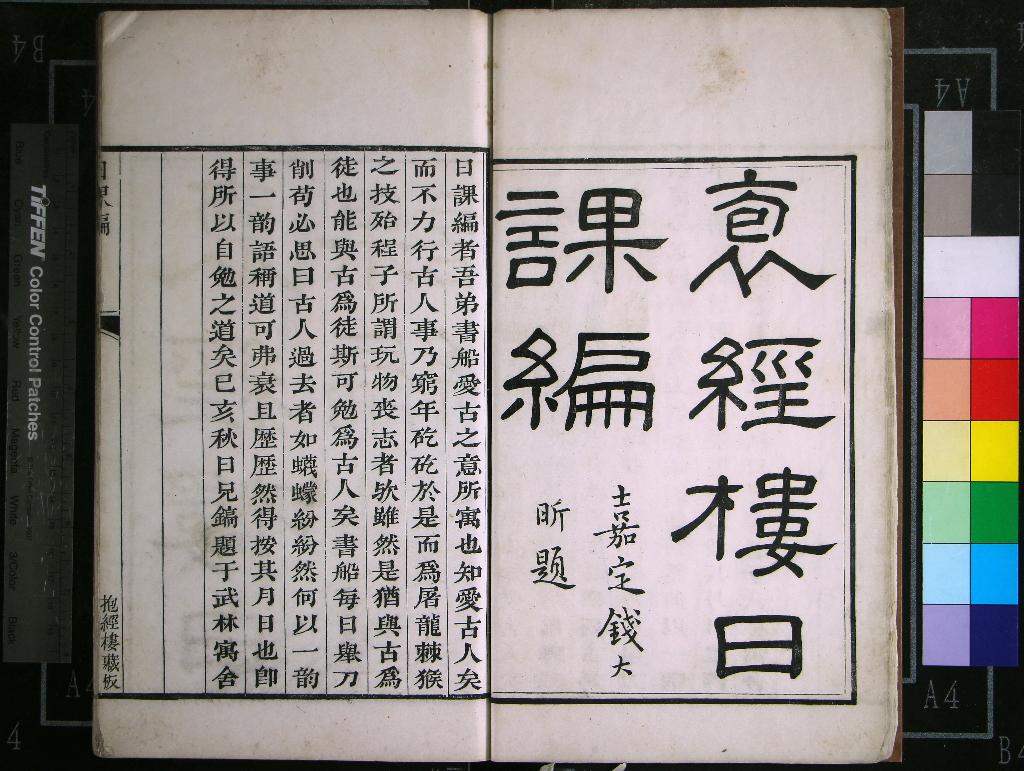 袌經樓日
課編
嘉定錢大
昕題
日課編者吾弟書船愛古之意所寓也知愛古人矣
而不力行古人事乃窮年矻矻於是而爲屠龍棘猴
之技殆程子所謂玩物喪志者歟雖然是猶與古爲
徒也能與古爲徒斯可勉爲古人矣書船每日舉刀
削苟必思曰古人過去者如蠛蠓紛紛然何以一韵
事一韵語稱道可弗衰且歷歷然得按其月日也卽
得所以自勉之道矣已亥秋日兄鎬題于武林寓舍
抱經樓藏板
TIFFEN Color Control Patches
Blue Cyan Green Yellow Red Magenta White 3/Color Black
B4
A4
A4
A4
4
B4